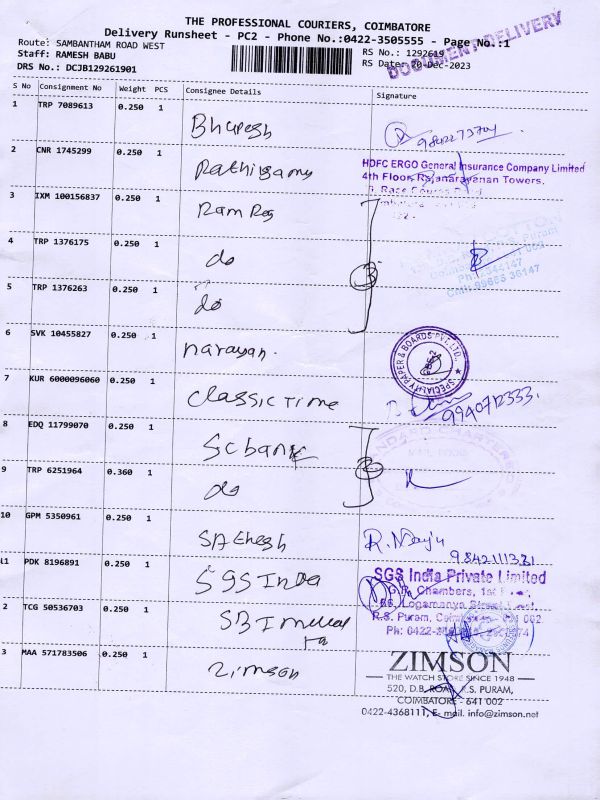 THE PROFESSIONAL COURIERS, COIMBATORE
Delivery Runsheet - PC2 - Phone No.:0422-3505555 - Page No.:1
Route: SAMBANTHAM ROAD WEST
RS No.: 1292619
Staff: RAMESH BABU
RS Date: 20-Dec-2023
DOCUMENT DELIVERY
DRS No.: DCJB129261901
S No Consignment No Weight PCS Consignee Details Signature
1 TRP 7089613 0.250 1 Bhupesh
2 CNR 1745299 0.250 1
HDFC ERGO General Insurance Company Limited
4th Floor, Rajanarayanan Towers,
3 IXM 100156837 0.250 1 Ram Raj
4 TRP 1376175 0.250 1 do
3
5 TRP 1376263 0.250 1 do
6 SVK 10455827 0.250 1 narayan.
SPECIALITY PAPER & BOARDS PVT. LTD.
7 KUR 6000096060 0.250 1 classic Time
9940712333.
8 EDQ 11799070 0.250 1 SC bank
STANDARD CHARTERED
9 TRP 6251964 0.360 1 do
2
10 GPM 5350961 0.250 1 SAthesh
9842111321
11 PDK 8196891 0.250 1 SGS India
SGS India Private Limited
Chambers, 1st
R.S. Puram,
641 002
2 TCG 50536703 0.250 1 SBI mutual
Ph: 0422-
3 MAA 571783506 0.250 1 Zimson
ZIMSON
THE WATCH STORE SINCE 1948
520, D.B. ROAD, R.S. PURAM,
COIMBATORE - 641 002
0422-4368111, E- mail. info@zimson.net